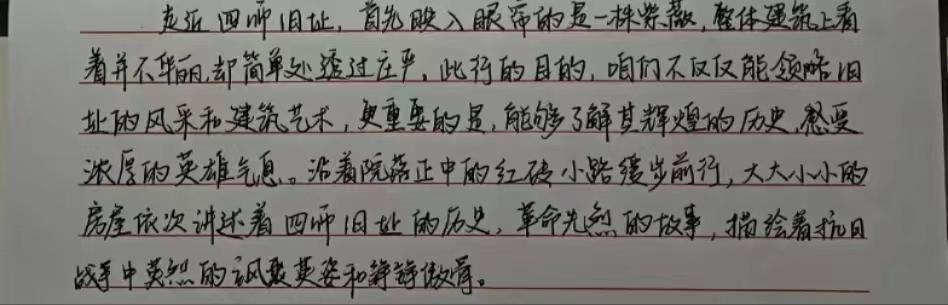 走近四师旧址，首先映入眼帘的是一株紫薇，整体建筑上看
着并不华丽，却简单处透过庄严，此行的目的，咱们不仅仅能领略旧
址的风采和建筑艺术，更重要的是，能够了解其辉煌的历史，感受
浓厚的英雄气息。沿着院落正中的红砖小路缓步前行，大大小小的
房屋依次讲述着四师旧址的历史，革命先烈的故事，描绘着抗日
战争中英烈的飒爽英姿和铮铮傲骨。